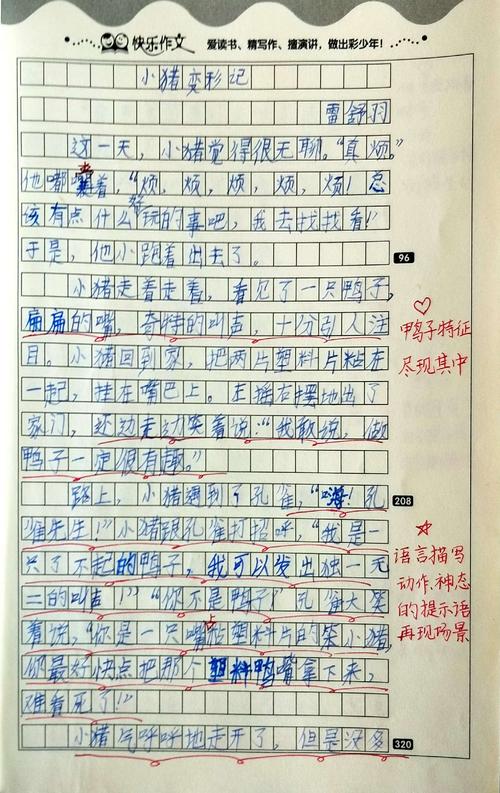 快乐作文 爱读书、精写作、擅演讲，做出彩少年！
小猪变形记
雷舒羽
这一天，小猪觉得很无聊。“真烦。”
他嘟囔着，“烦，烦，烦，烦，烦！总
该有点什么好玩的事吧，我去找找看！”
于是，他小跑着出去了。
96
小猪走着走着，看见了一只鸭子，
扁扁的嘴，奇特的叫声，十分引人注
目。小猪回到家，把两片塑料片粘在
一起，挂在嘴巴上。左摇右摆地出了
家门，还边走边笑着说：“我敢说，做
鸭子一定很有趣。”
鸭子特征
尽现其中
路上，小猪遇到了孔雀，“嗨！孔
208
雀先生！”小猪跟孔雀打招呼，“我是一
只了不起的鸭子，我可以发出独一无
二的叫声！”“你不是鸭子！”孔雀大笑
着说，“你是一只嘴上挂塑料片的笨小猪，
你最好快点把那个塑料鸭嘴拿下来，
难看死了！”
语言描写
动作、神态
的提示语
再现场景
小猪气呼呼地走开了，但是没多
320